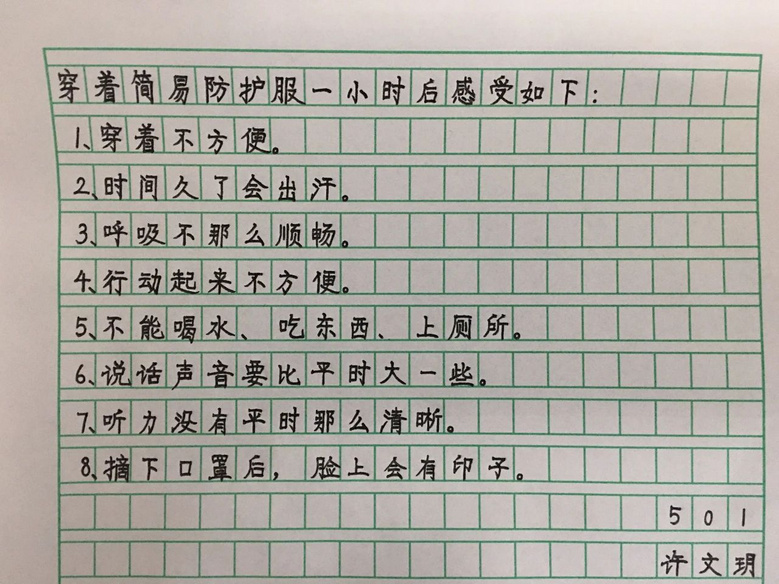 穿着简易防护服一小时后感受如下：
1、穿着不方便。
2、时间久了会出汗。
3、呼吸不那么顺畅。
4、行动起来不方便。
5、不能喝水、吃东西、上厕所。
6、说话声音要比平时大一些。
7、听力没有平时那么清晰。
8、摘下口罩后，脸上会有印子。
501
许文玥